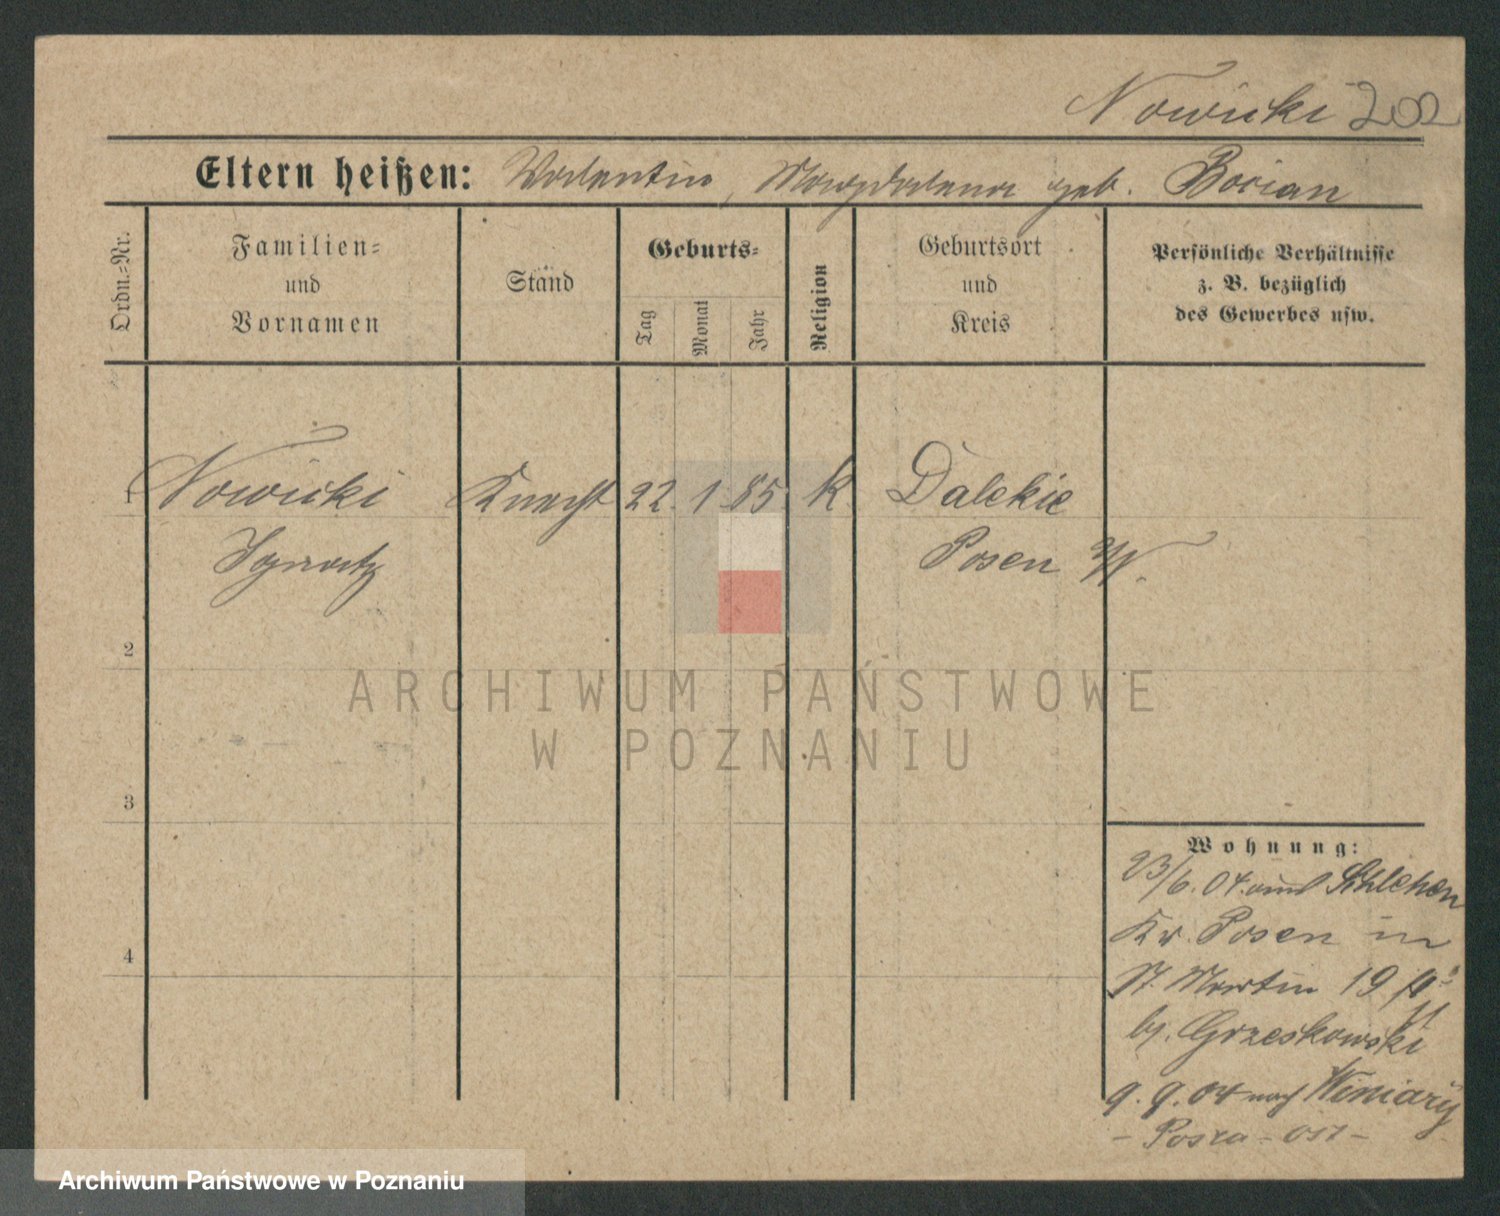 Nowicki 202
Eltern heißen: Valentin, Magdalena geb. Bocian
Ordn.-Nr.
Familien-
und
Vornamen
Stand
Geburts-
Tag
Monat
Jahr
Religion
Geburtsort
und
Kreis
Persönliche Verhältnisse
z. B. bezüglich
des Gewerbes usw.
1 Nowicki Knecht 22. 1. 85. K. Dalekie
Ignatz Posen W.
2
3
4
Wohnung:
23/6. 04. aus
Kr. Posen in
St Martin 19
bj. Grzeskowski
9. 9. 04 nach Winiary
- Posen - Ost -
ARCHIWUM PAŃSTWOWE
W POZNANIU
Archiwum Państwowe w Poznaniu